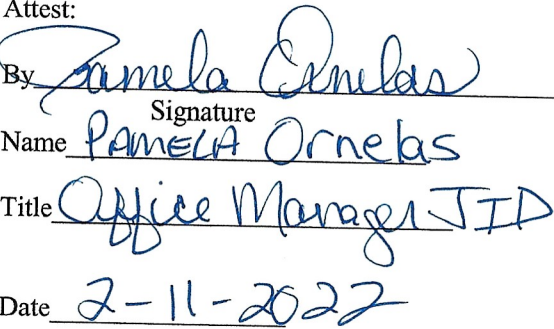 Attest:
By Pamela Ornelas
Signature
Name PAMELA Ornelas
Title Office Manager JID
Date 2-11-2022